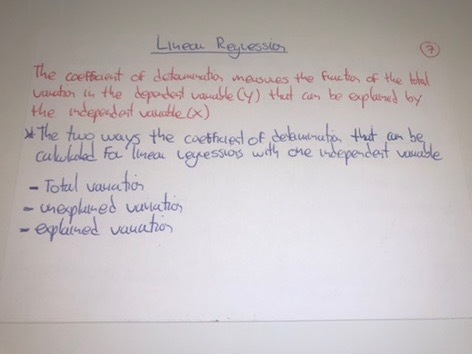 Linear Regression
7
The coefficient of determination measures the fraction of the total
variation in the dependent variable (Y) that can be explained by
the independent variable (X)
* The two ways the coefficient of determination that can be
calculated for linear regressions with one independent variable
- Total variation
- unexplained variation
- explained variation